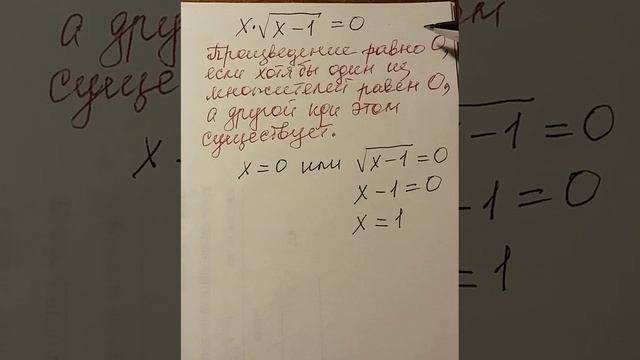 x·√x-1 = 0
Произведение равно 0,
если хотя бы один из
множителей равен 0,
а другой при этом
существует.
x = 0 или √x-1 = 0
x-1 = 0
x = 1